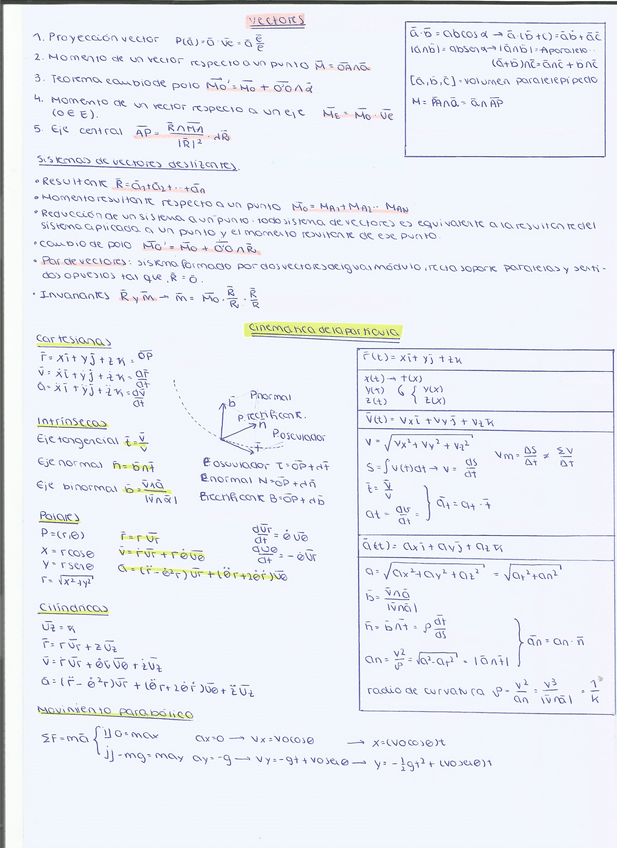 vectores
1. Proyección vector P(ā) = ā · v̄e = ā ē/e
2. Momento de un vector respecto a un punto M̄ = O̅A̅∧ā
3. Teorema cambio de polo M̄o' = M̄o + O̅'O̅∧ā
4. Momento de un vector respecto a un eje M̄E = M̄o · v̄e
(O ∈ E).
5. Eje central A̅P̅ = R̄∧M̄A / |R̄|² · λR̄
ā·b̄ = ab cos α → ā·(b̄+c̄) = āb̄ + āc̄
|a∧b| = ab sen α → |a∧b| = A paralelo..
(ā+b̄)∧c̄ = ā∧c̄ + b̄∧c̄
[ā, b̄, c̄] = volumen paralelepípedo
M = P̅A̅∧ā = ā∧A̅P̅
Sistemas de vectores deslizantes.
• Resultante R̄ = ā1 + ā2 + ··· + ān
• Momento resultante respecto a un punto M̄o = MA1 + MA2 ·· MAN
• Reducción de un sistema a un punto: todo sistema de vectores es equivalente a la resultante del
sistema aplicada a un punto y el momento resultante de ese punto.
• cambio de polo M̄o' = M̄o + O̅'O̅∧R̄
• Par de vectores: sistema formado por dos vectores de igual módulo, recta soporte paralelas y senti-
dos opuestos tal que, R̄ = 0.
• Invariantes R̄ y m̄ → m̄ = M̄o · R̄/R · R̄/R
cinemática de la partícula
Cartesianas
r̄ = xī + yj̄ + zk̄ = O̅P̅
v̄ = ẋī + ẏj̄ + żk = dr̄/dt
ā = ẍī + ÿj̄ + z̈k = dv̄/dt
Intrínsecas
Eje tangencial t̄ = v̄/v
Eje normal n̄ = b̄∧t̄
Eje binormal b̄ = v̄∧ā / |v̄∧ā|
b̄
n
t̄
P.normal
P.rectificant.
P.osculador
E osculador T = O̅P̅ + λt̄
E normal N = O̅P̅ + λn̄
E rectificante B = O̅P̅ + λb̄
Polares
P = (r, θ) r̄ = r ūr
x = r cos θ v̄ = ṙ ūr + r θ̇ ūθ
y = r sen θ ā = (r̈ - θ̇²r) ūr + (θ̈r + 2θ̇ṙ) ūθ
r = √x²+y²
dūr/dt = θ̇ ūθ
dūθ/dt = -θ̇ ūr
Cilíndricas
ūz = k
r̄ = r ūr + z ūz
v̄ = ṙ ūr + θ̇r ūθ + ż ūz
ā = (r̈ - θ̇²r) ūr + (θ̈r + 2θ̇ṙ) ūθ + z̈ ūz
r̄(t) = xī + yj̄ + zk
x(t) → t(x)
y(t) y(x)
z(t) z(x)
v̄(t) = vx ī + vy j̄ + vz k
v = √vx² + vy² + vz²
vm = ΔS/Δt ≠ Σv/Δt
S = ∫v(t)dt → v = ds/dt
t̄ = v̄/v
at = dv/dt =
āt = at · t̄
ā(t) = ax ī + ay j̄ + az k
a = √ax² + ay² + az² = √at² + an²
b̄ = v̄∧ā / |v̄∧ā|
n̄ = b̄∧t̄ = ρ dt̄/ds
an = v²/ρ = √a² - at² = |ā∧t|
ān = an · n̄
radio de curvatura ρ = v²/an = v³/|v̄∧ā| = 1/k
Movimiento parabólico
ΣF = mā { i) 0 = max ax = 0 → vx = vo cos θ → x = (vo cos θ)t
j) -mg = may ay = -g → vy = -gt + vo sen θ → y = -½gt² + (vo sen θ)t